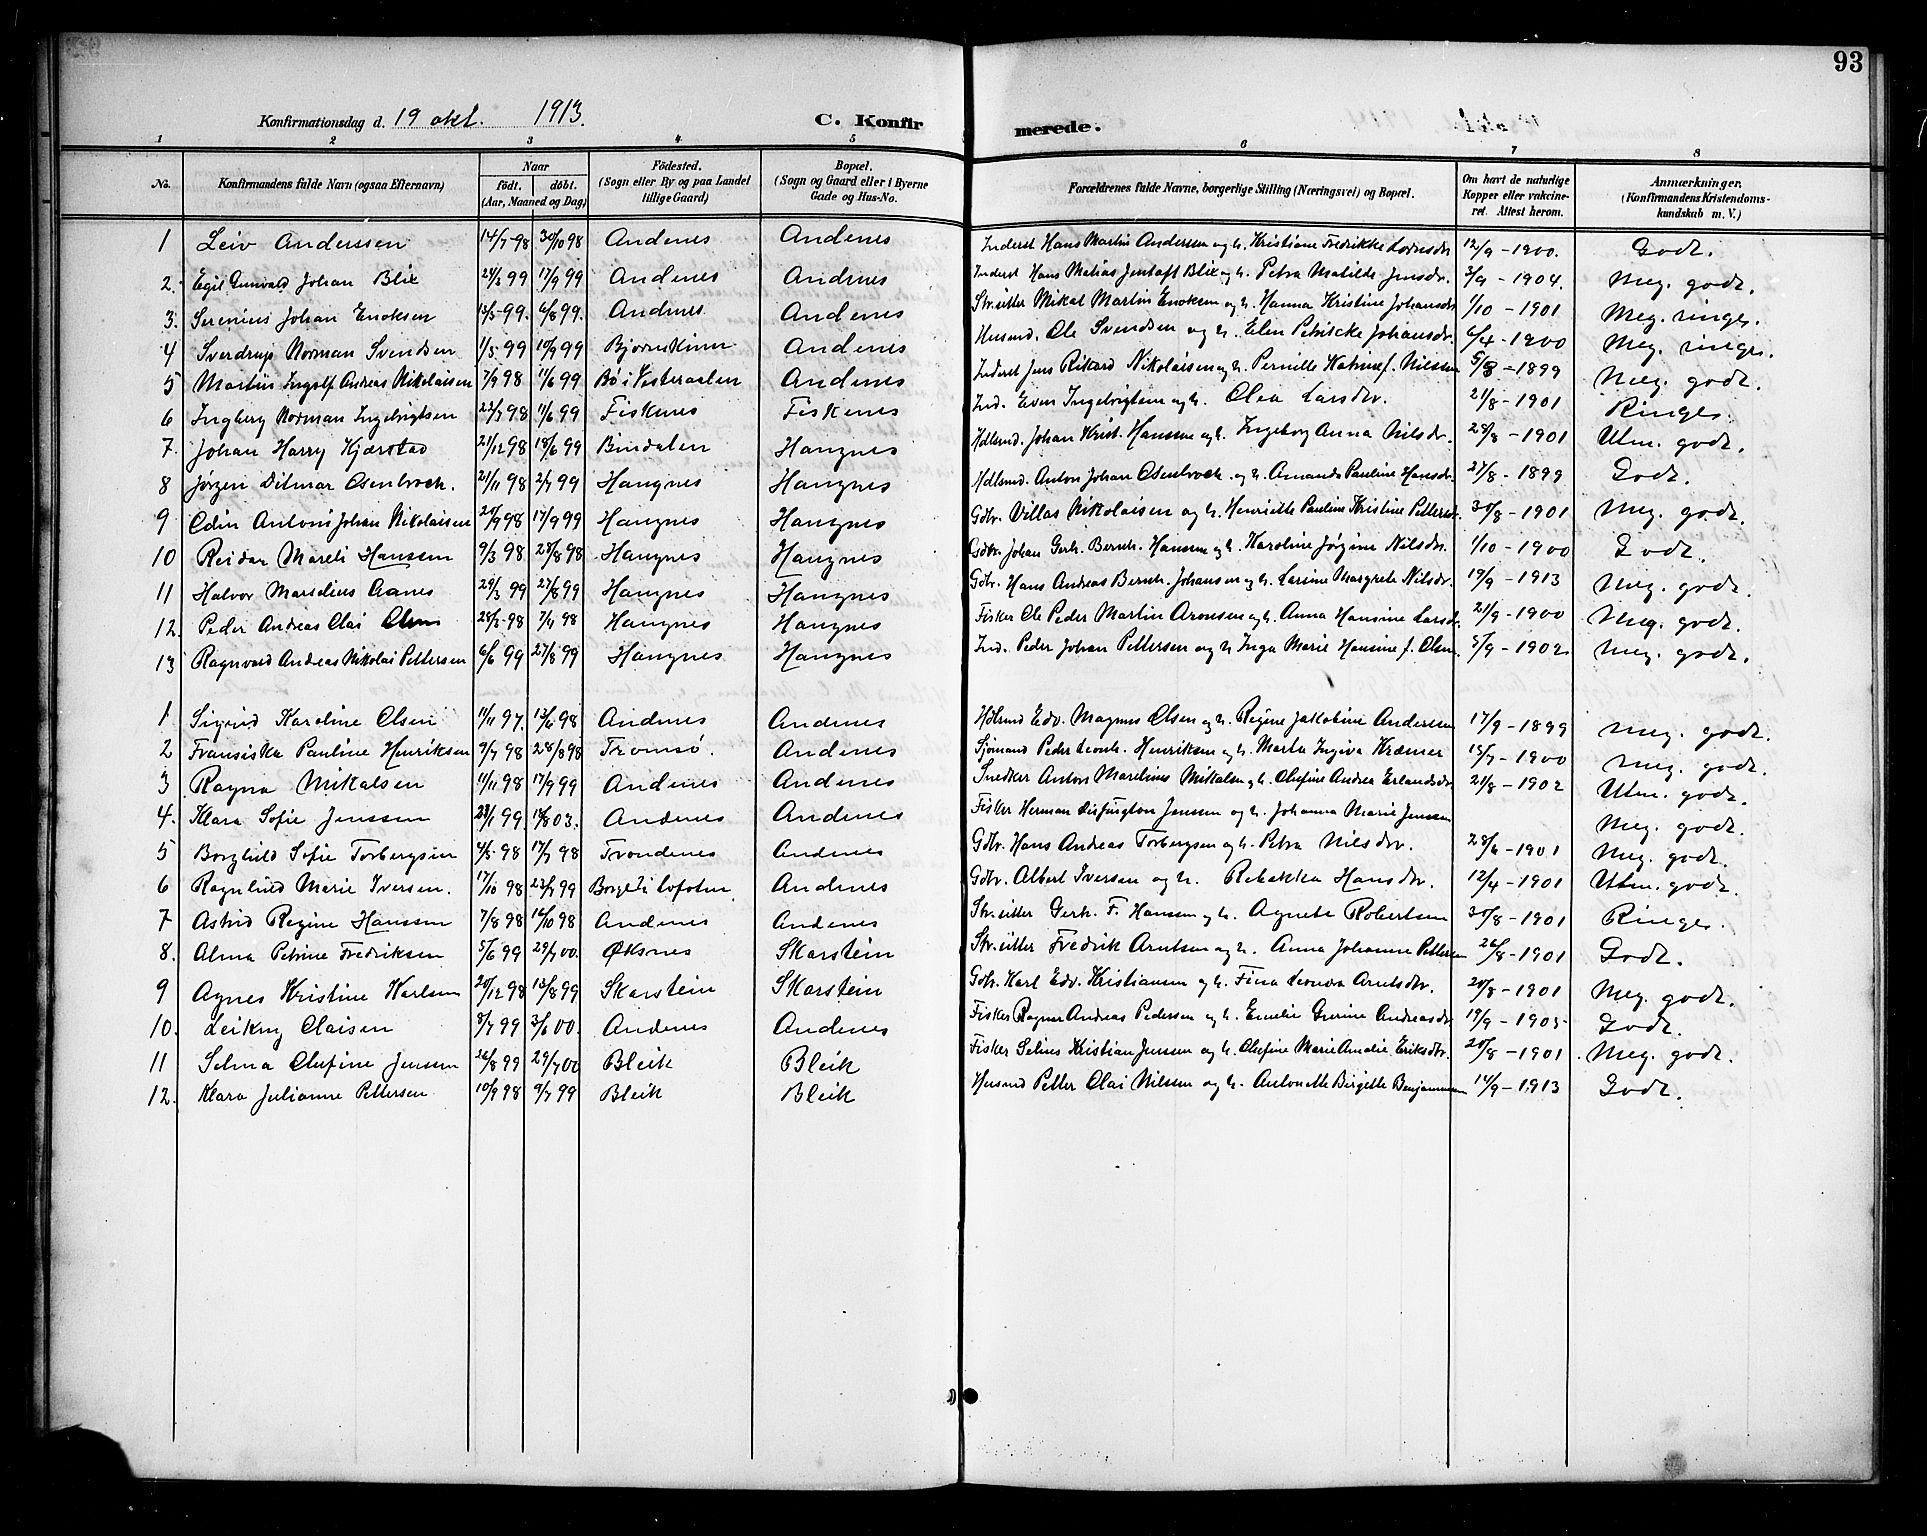 93
Konfirmationsdag d. 19 okt. 1913. C. Konfir merede.
1 2 3 4 5 6 7 8
No. Konfirmandens fulde Navn (ogsaa Efternavn) Naar födt. döbt. (Aar, Maaned og Dag) Födested. (Sogn eller By og paa Landet tillige Gaard) Bopæl. (Sogn og Gaard eller i Byerne Gade og Hus-No. Forældrenes fulde Navne, borgerlige Stilling (Næringsvei) og Bopæl. Om havt de naturlige Kopper eller vakcineret. Attest herom. Anmærkninger. (Konfirmandens Kristendomskundskab m. V.)
1 Leiv Anderssen 14/7 98 30/10 98 Andenes Andenes Inderst Hans Martin Anderssen og h. Kristiane Fredrikke 12/9 - 1900. Godt.
2. Egil Gunvald Johan Blix 24/3 99 17/9 99 Andenes Andenes Inderst Hans Matias Jentoft Blix og h. Petra Matilde Jensdr. 3/9 - 1904. Meg. godt.
3. Serenius Johan Enoksen 13/5 99. 6/8 99. Andenes. Andenes Str.sitter Mikal Martin Enoksen og h. Hanna Kristine Johansdr 1/10 - 1901 Meg. ringe.
4 Sverdrup Norman Svendsen 1/5 99 10/9 99 Bjørnskinn Andenes Husmd. Ole Svendsen og h. Elen Petricke Johansdr. 6/4 - 1900 Meg. ringe.
5 Martin Ingolf Andreas Nikolaisen 7/9 98 11/6 99 Bø i Vesteraalen Andenes Inderst Jens Rikard Nikolaisen og h. Pernille Katrine f. Nilssen 5/8 - 1899 Meg. godt.
6 Ingberg Norman Ingebrigtsen 22/7 98 11/6 99 Fiskenes Fiskenes Ind. Even Ingebrigtsen og h. Olea Larsdr. 21/8 - 1901 Ringe.
7. Johan Harry Kjærstad 21/12 98 18/6 99 Bindalen Haugnes Hdlsmd. Johan Krist. Hanssen og h. Ingeborg Anna Nilsdr. 28/8 - 1901 Utm. godt.
8 Jørgen Ditmar Osenbrock. 21/11 98 2/7 99 Haugnes Haugnes Hdlsmd. Anton Johan Osenbrock og h. Amanda Pauline Hansdr. 27/8 - 1899 Godt.
9 Edin Antoni Johan Nikolaisen 24/9 98 17/9 99 Haugnes Haugnes Gdbr. Villas Nikolaisen og h. Henriette Pauline Kristine Pettersdr. 30/8 - 1901 Meg. godt.
10 Reidar Mareli Hanssen 9/3 98 28/8 98 Haugnes Haugnes Gdbr. Johan Gerh. Bernh. Hanssen og h. Karoline Jørgine Nilsdr. 1/10 - 1900 Godt.
11 Halvor Marselius Aanes 29/3 99 27/8 99 Haugnes Haugnes Gdbr. Hans Andreas Bernh. Johansen og h. Larine Margrete Nilsdr. 19/9 - 1913 Meg. godt.
12. Peder Andreas Olai Olsen 28/3 98 7/4 98 Haugnes Haugnes Fisker Ole Peder Martin Aronsen og h. Anna Hansine Larsdr. 21/9 - 1900 Meg. godt.
13 Ragnvald Andreas Nikolai Pettersen 6/6 99 27/8 99 Haugnes Haugnes Ind. Peder Johan Pettersen og h. Inga Marie Hansine f. Olsen 5/9 - 1902 Meg. godt.
1 Sigrid Karoline Olsen 11/11 97. 12/6 98 Andenes Andenes Hdlsmd Edv. Magnus Olsen og h. Regine Jakobine Anderssen 17/9 - 1899 Meg. godt.
2 Fransiska Pauline Henriksen 9/7 98 28/8 98 Tromsø. Andenes Sjømand Peder Leonh. Henriksen og h. Marta Ingiva Kræmer 15/7 - 1900 Meg. godt.
3 Ragna Mikalsen 11/11 98 17/9 99 Andenes Andenes Snedker Anton Marelius Mikalsen og h. Olufine Andrea Erlandsdr. 21/8 - 1902 Utm. godt.
4. Klara Sofie Jenssen 23/1 99. 16/8 03. Andenes Andenes Fisker Herman Jenssen og h. Johanna Marie Jenssen Meg. godt.
5 Borghild Sofie Torbergsen 4/5 98 17/7 98 Trondenes Andenes Gdbr. Hans Andreas Torbergsen og h. Petra Nilsdr. 28/6 - 1901 Meg. godt.
6 Ragnhild Marie Iversen. 17/10 98 23/7 99 Borge i Lofoten Andenes Gdbr. Albert Iversen og h. Rebekka Hansdr. 12/4 - 1901 Utm. godt.
7 Astrid Regine Hanssen 7/8 98 16/10 98 Andenes Andenes Str.sitter Gerh. F. Hanssen og h. Agnete Robertsen 30/8 - 1901 Ringe.
8. Alma Petrine Fredriksen 5/6 99 29/7 00. Øksnes Skarstein Str.sitter Fredrik Arntsen og h. Anna Johanne Pettersen 26/8 - 1901 Godt.
9 Agnes Kristine Karlsen 20/12 98 13/8 99 Skarstein Skarstein Gdbr. Karl Edv. Kristiansen og h. Fina Leonora Arntsdr. 20/8 - 1901 Meg. godt.
10. Leikny Olaisen 8/7 99 3/6 00. Andenes Andenes Fisker Ragnar Andreas Pedersen og h. Emelie Andreasdr 19/9 - 1905 Godt.
11 Selma Olufine Jenssen 26/8 99 29/7 00 Bleik Bleik Fisker Selius Kristian Jenssen og h. Olufine Marie Amalie Eriksdtr. 20/8 - 1901. Meg. godt.
12. Klara Julianne Pettersen 10/9 98 9/7 99 Bleik Bleik Husmd Petter Olai Nilssen og h. Antonette Birgitte Benjaminsen 14/9 - 1913 Godt.